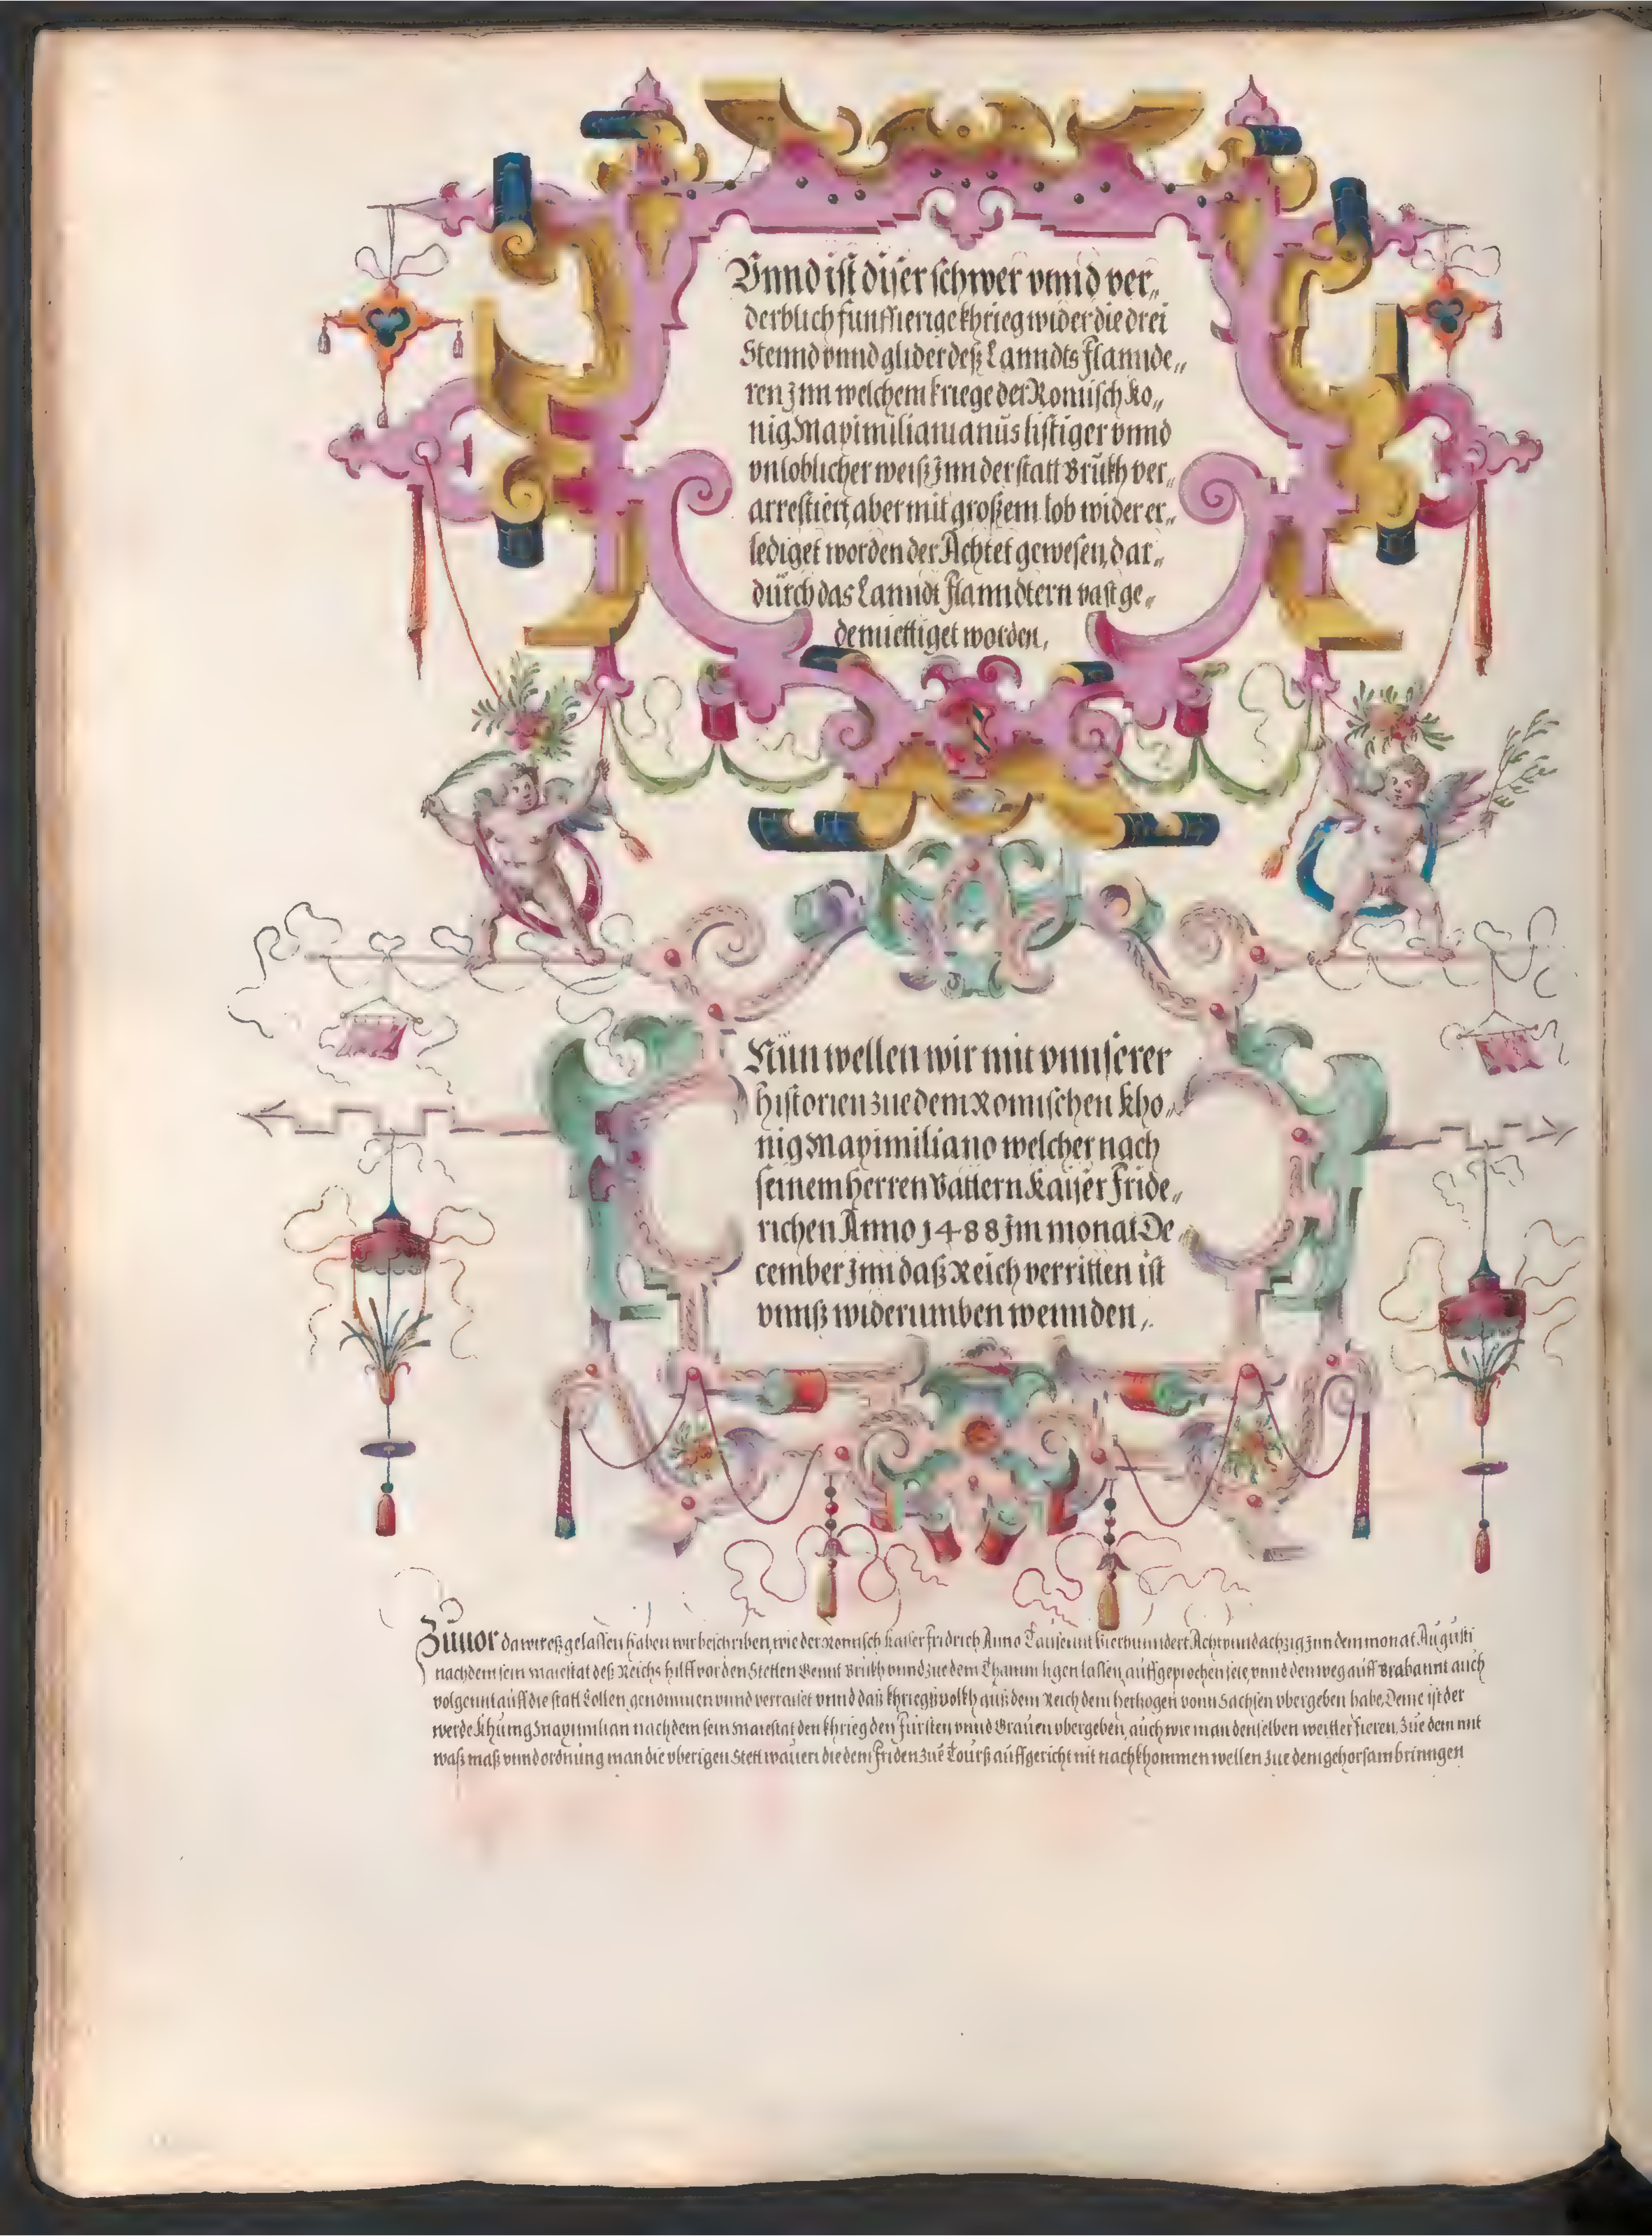 Vnnd ist diser schwer vnnd ver„
derblich funffierige khrieg wider die drei
Stennd vnnd glider deß Lanndts Flannde„
ren Jnn welchem kriege der Romisch Ko„
nig Maximilianianus listiger vnnd
vnloblicher weiß Jnn der statt Brükh ver„
arrestiert, aber mit großem lob wider er„
lediget worden der Achtet gewesen, dar„
dürch das Lanndt Flanndtern vast ge„
demiettiget worden,
Nün wellen wir mit vnnserer
historien zue dem Romischen kho„
nig Maximiliano welcher nach
seinem herren Vattern Kaiser Fride„
richen Anno 1488 Jm monat De„
cember Jnn daß Reich verritten ist
vnnß widerumben wennden,
Züuor da wir eß gelassen haben wir beschriben, wie der Romisch Kaiser Fridrich Anno Tausennt Vierhunndert Acht vnndachzig Jnn dem monat Augusti
nachdem sein Maiestat deß Reichs hilff vor den Stetten Gennt Brükh vnnd zue dem Thamm ligen lassen, auffgeprochen seie, vnnd den weg auff Brabannt auch
volgennt auff die statt Collen genommen vnnd verraiset vnnd daß khriegßvolkh auß dem Reich dem hertzogen vonn Sachsen vbergeben habe, Deme ist der
werde Khünig Maximilian nach dem sein Maiestat den khrieg den Fürsten vnnd Grauen vbergeben, auch wie man denselben weitter fieren, Zue dem mit
waß maß vnnd ordnung man die vberigen Stett wauern die dem Friden züe Tourß auffgericht nit nachkhommen wellen zue dem gehorsam brinngen